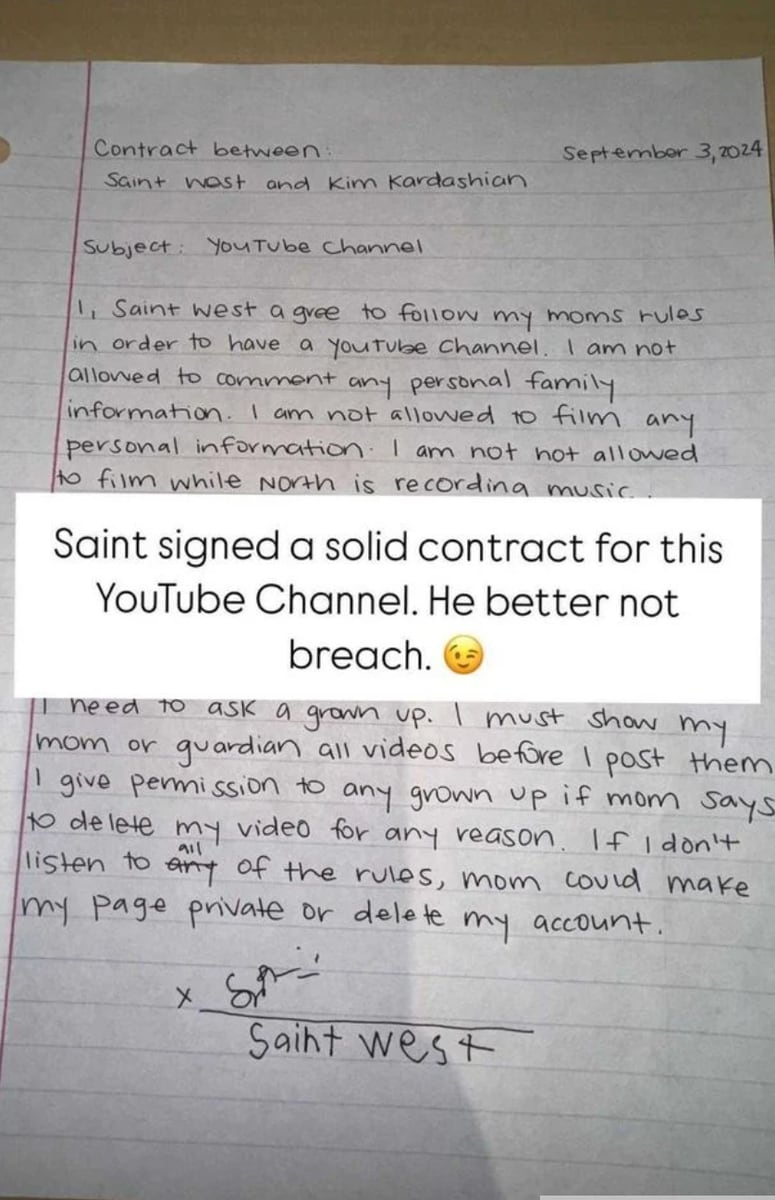 Contract between:
September 3, 2024
Saint West and Kim Kardashian
Subject: YouTube Channel
I, Saint West agree to follow my moms rules
in order to have a YouTube Channel. I am not
allowed to comment any personal family
information. I am not allowed to film any
personal information. I am not not allowed
to film while North is recording music.
Saint signed a solid contract for this
YouTube Channel. He better not
breach. 😉
I need to ask a grown up. I must show my
mom or guardian all videos before I post them
I give permission to any grown up if mom says
to delete my video for any reason. If I don't
all
listen to any of the rules, mom could make
my page private or delete my account.
x
Saint West